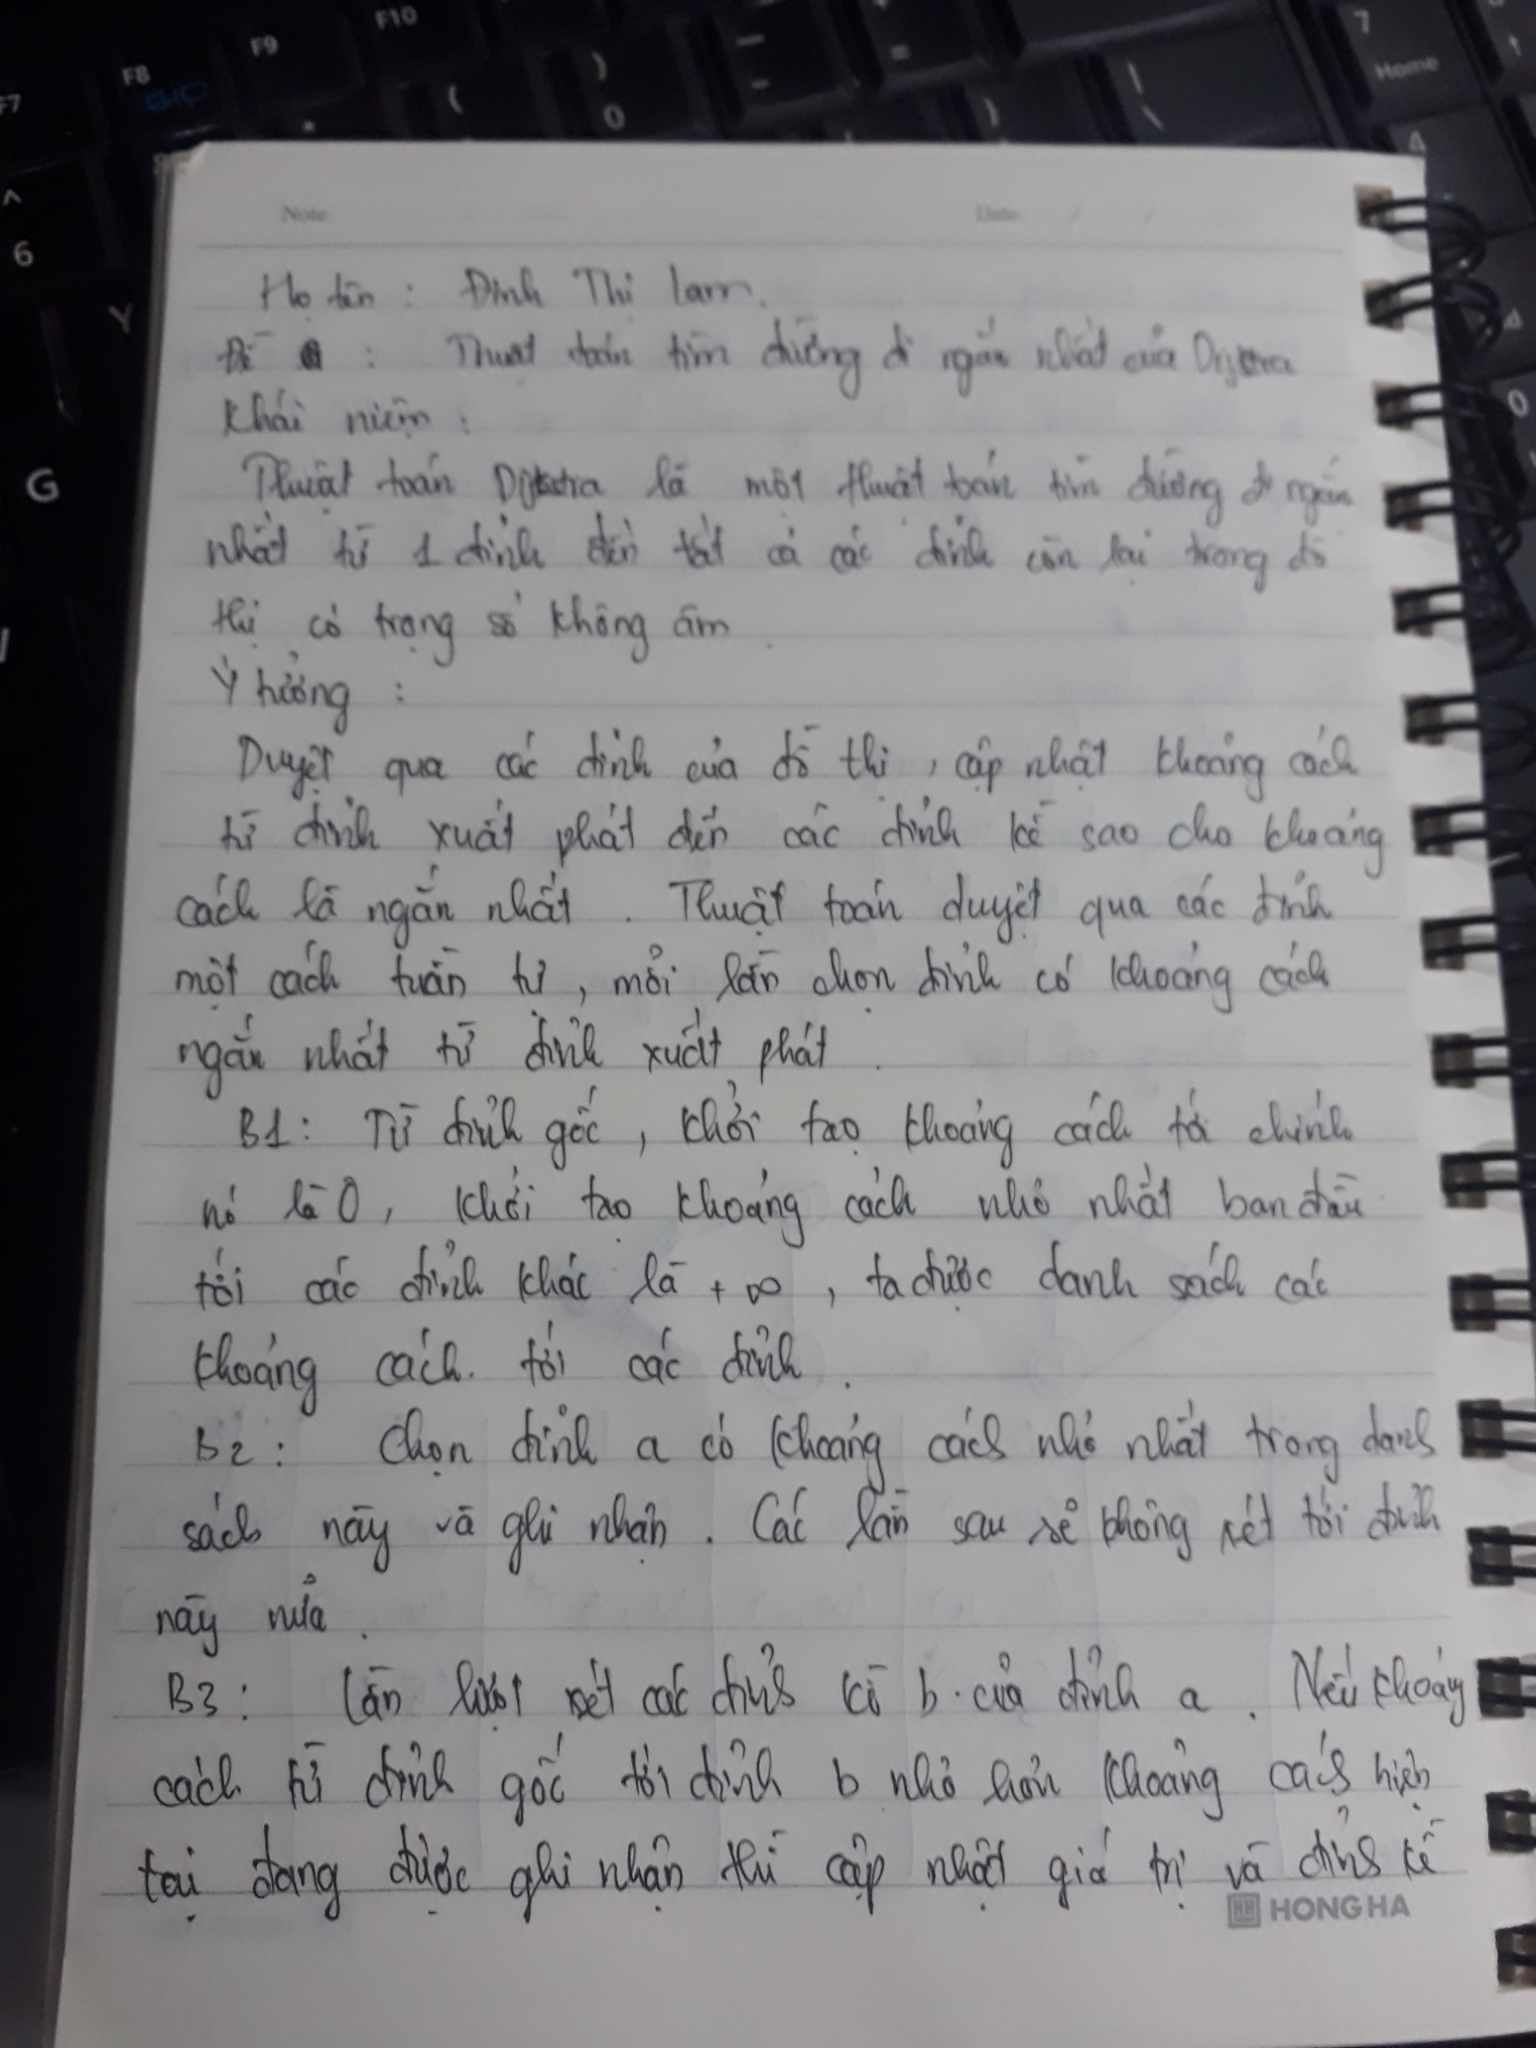 F7
F8
F9
F10
(
)
0
7
Home
6
Y
G
Note
Date / /
Họ tên : Đinh Thị Lam.
Đề : Thuật toán tìm đường đi ngắn nhất của Dijktra
Khái niệm :
Thuật toán Dijkstra là một thuật toán tìm đường đi ngắn
nhất từ 1 đỉnh đến tất cả các đỉnh còn lại trong đồ
thị có trọng số không âm.
Ý tưởng :
Duyệt qua các đỉnh của đồ thị, cập nhật khoảng cách
từ đỉnh xuất phát đến các đỉnh kề sao cho khoảng
cách là ngắn nhất. Thuật toán duyệt qua các đỉnh
một cách tuần tự, mỗi lần chọn đỉnh có khoảng cách
ngắn nhất từ đỉnh xuất phát.
B1: Từ đỉnh gốc, khởi tạo khoảng cách tới chính
nó là 0, khởi tạo khoảng cách nhỏ nhất ban đầu
tới các đỉnh khác là +∞, ta được danh sách các
khoảng cách tới các đỉnh.
B2: Chọn đỉnh a có khoảng cách nhỏ nhất trong danh
sách này và ghi nhận. Các lần sau sẽ không xét tới đỉnh
này nữa.
B3: Lần lượt xét các đỉnh kề b của đỉnh a. Nếu khoảng
cách từ đỉnh gốc tới đỉnh b nhỏ hơn khoảng cách hiện
tại đang được ghi nhận thì cập nhật giá trị và đỉnh kề
HONG HA